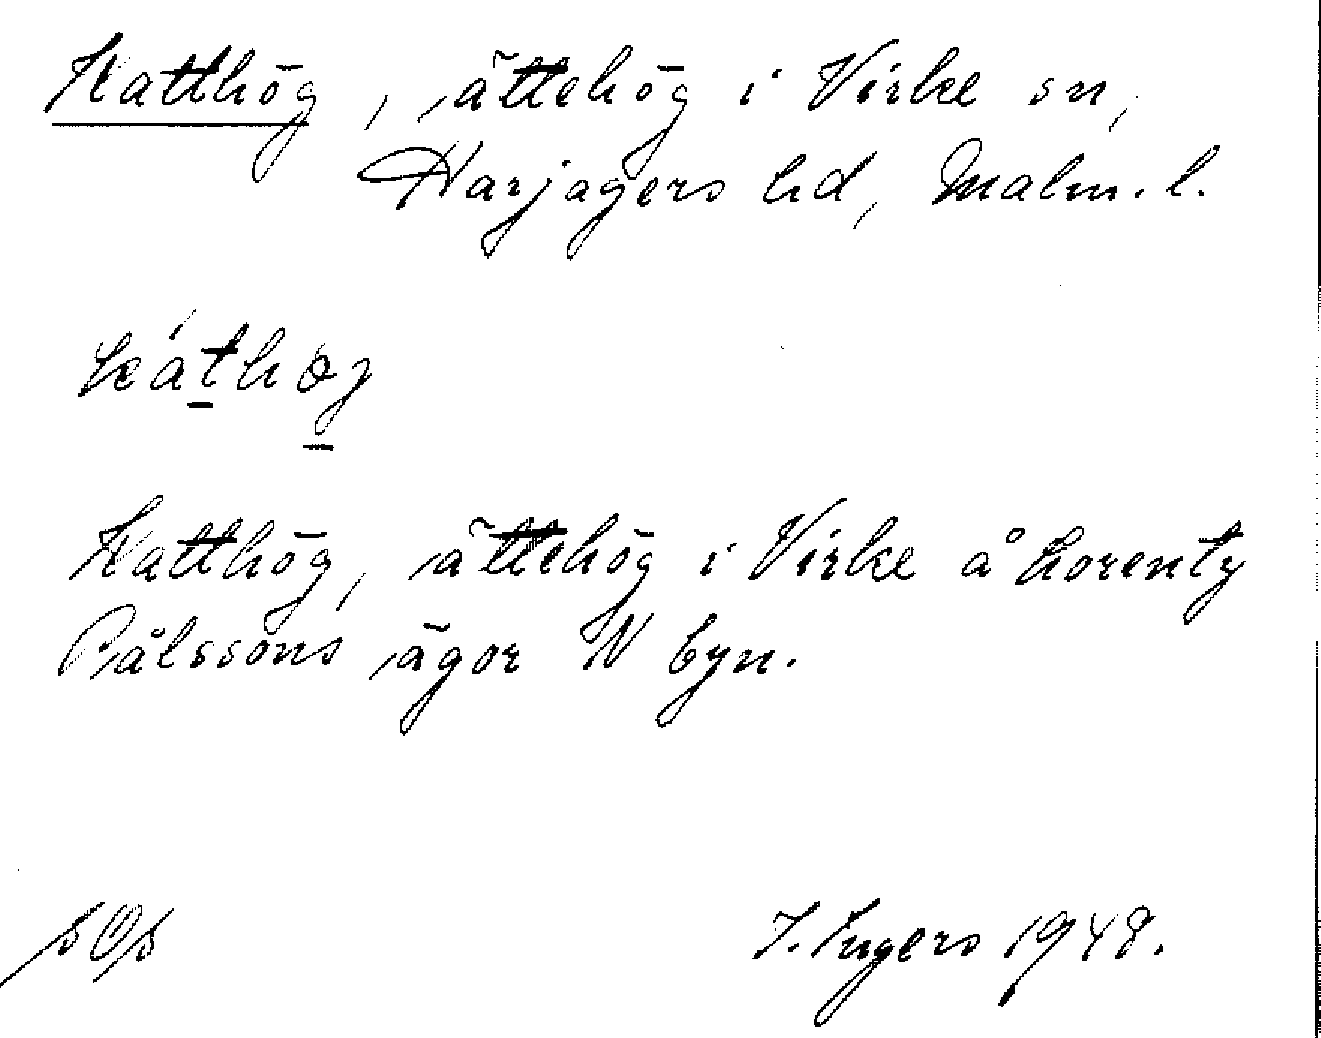 Katthög, ättehög i Virke sn,
Harjagers hd, Malm. l.
káthøj
Katthög, ättehög i Virke å Lorenty
Pålssons ägor N byn.
I. Ingers 1948.